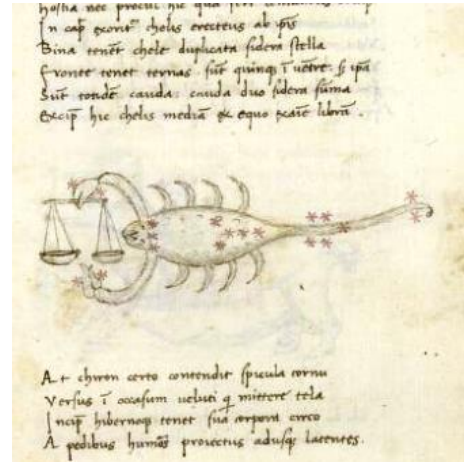 hostia nec procul hic qua
In cap̄ exorit᷑ chelis erectus ab ip̄is
Bina tenēt chele duplicata sidera stella
Fronte tenet ternas sūt quinq; ī uētre s; ip̄a
Sūt totidē cauda: cauda duo sidera sūma
Excip̄ hic chelis mediā ex equo exaiē librā
At chiron certo contendit spicula cornu
Versus ī occasum veluti q̄ mittere tela
Incip̄ hibernoq; tenet sua corpora circo
A pedibus humōs proiectus adusq; latentes.